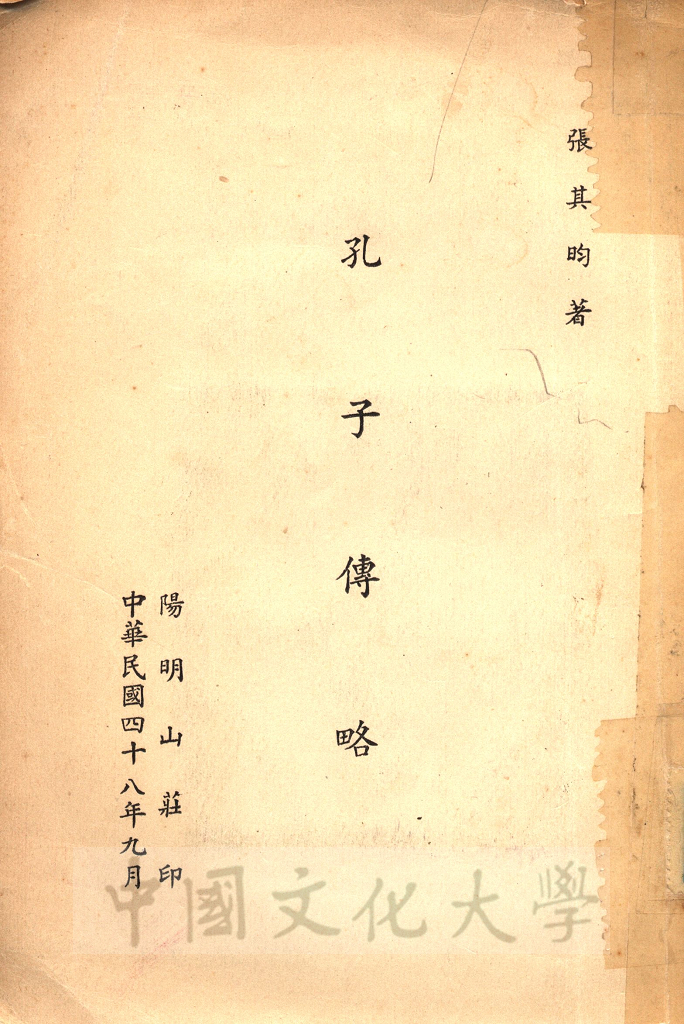 張其昀著
孔子傳略
陽明山莊印
中華民國四十八年九月
中國文化大學